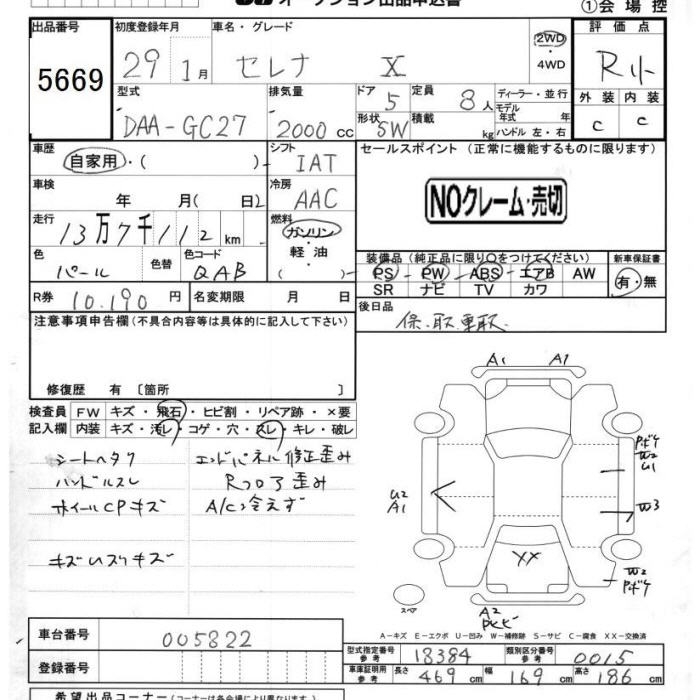 オークション出品申込書 ①会場控
出品番号 初度登録年月 車名・グレード 評価点
5669 29年 1月 セレナ X 2WD・4WD R小
型式 排気量 ドア 5 定員 8人 ディーラー・並行 外装 内装
DAA-GC27 2000cc 形状 5W 積載 kg モデル年式 年 ハンドル 左・右 C C
車歴 自家用・( ) シフト IAT セールスポイント (正常に機能するものに限ります)
車検 年 月( 日) 冷房 AAC NOクレーム・売切
走行 13万7千112km 燃料 ガソリン・軽油・( )
色 パール 色替 色コード QAB
装備品 (純正品に限り○をつけてください) 新車保証書
PS PW ABS エアB AW 有・無
SR ナビ TV カワ
R券 10.190円 名変期限 月 日 後日品 保.取.車取.
注意事項申告欄 (不具合内容等は具体的に記入して下さい)
修復歴 有 [箇所 ]
検査員 FW キズ・飛石・ヒビ割・リペア跡・×要
記入欄 内装 キズ・汚レ・コゲ・穴・スレ・キレ・破レ
シートヘタリ エンドパネル修正歪み
ハンドルスレ Rフロア歪み
ホイールCPキズ A/C冷えず
キズ.スリキズ
A1 A1
P.ボケ
U2
A1
W2
U1
W3
XX
W2
P.ボケ
スペア
A2
A-キズ E-エクボ U-凹み W-補修跡 S-サビ C-腐食 XX-交換済
車台番号 005822 型式指定番号 参考 18384 類別区分番号 参考 0015
登録番号 車庫証明用 参考 長さ 469cm 幅 169cm 高さ 186cm
希望出品コーナー